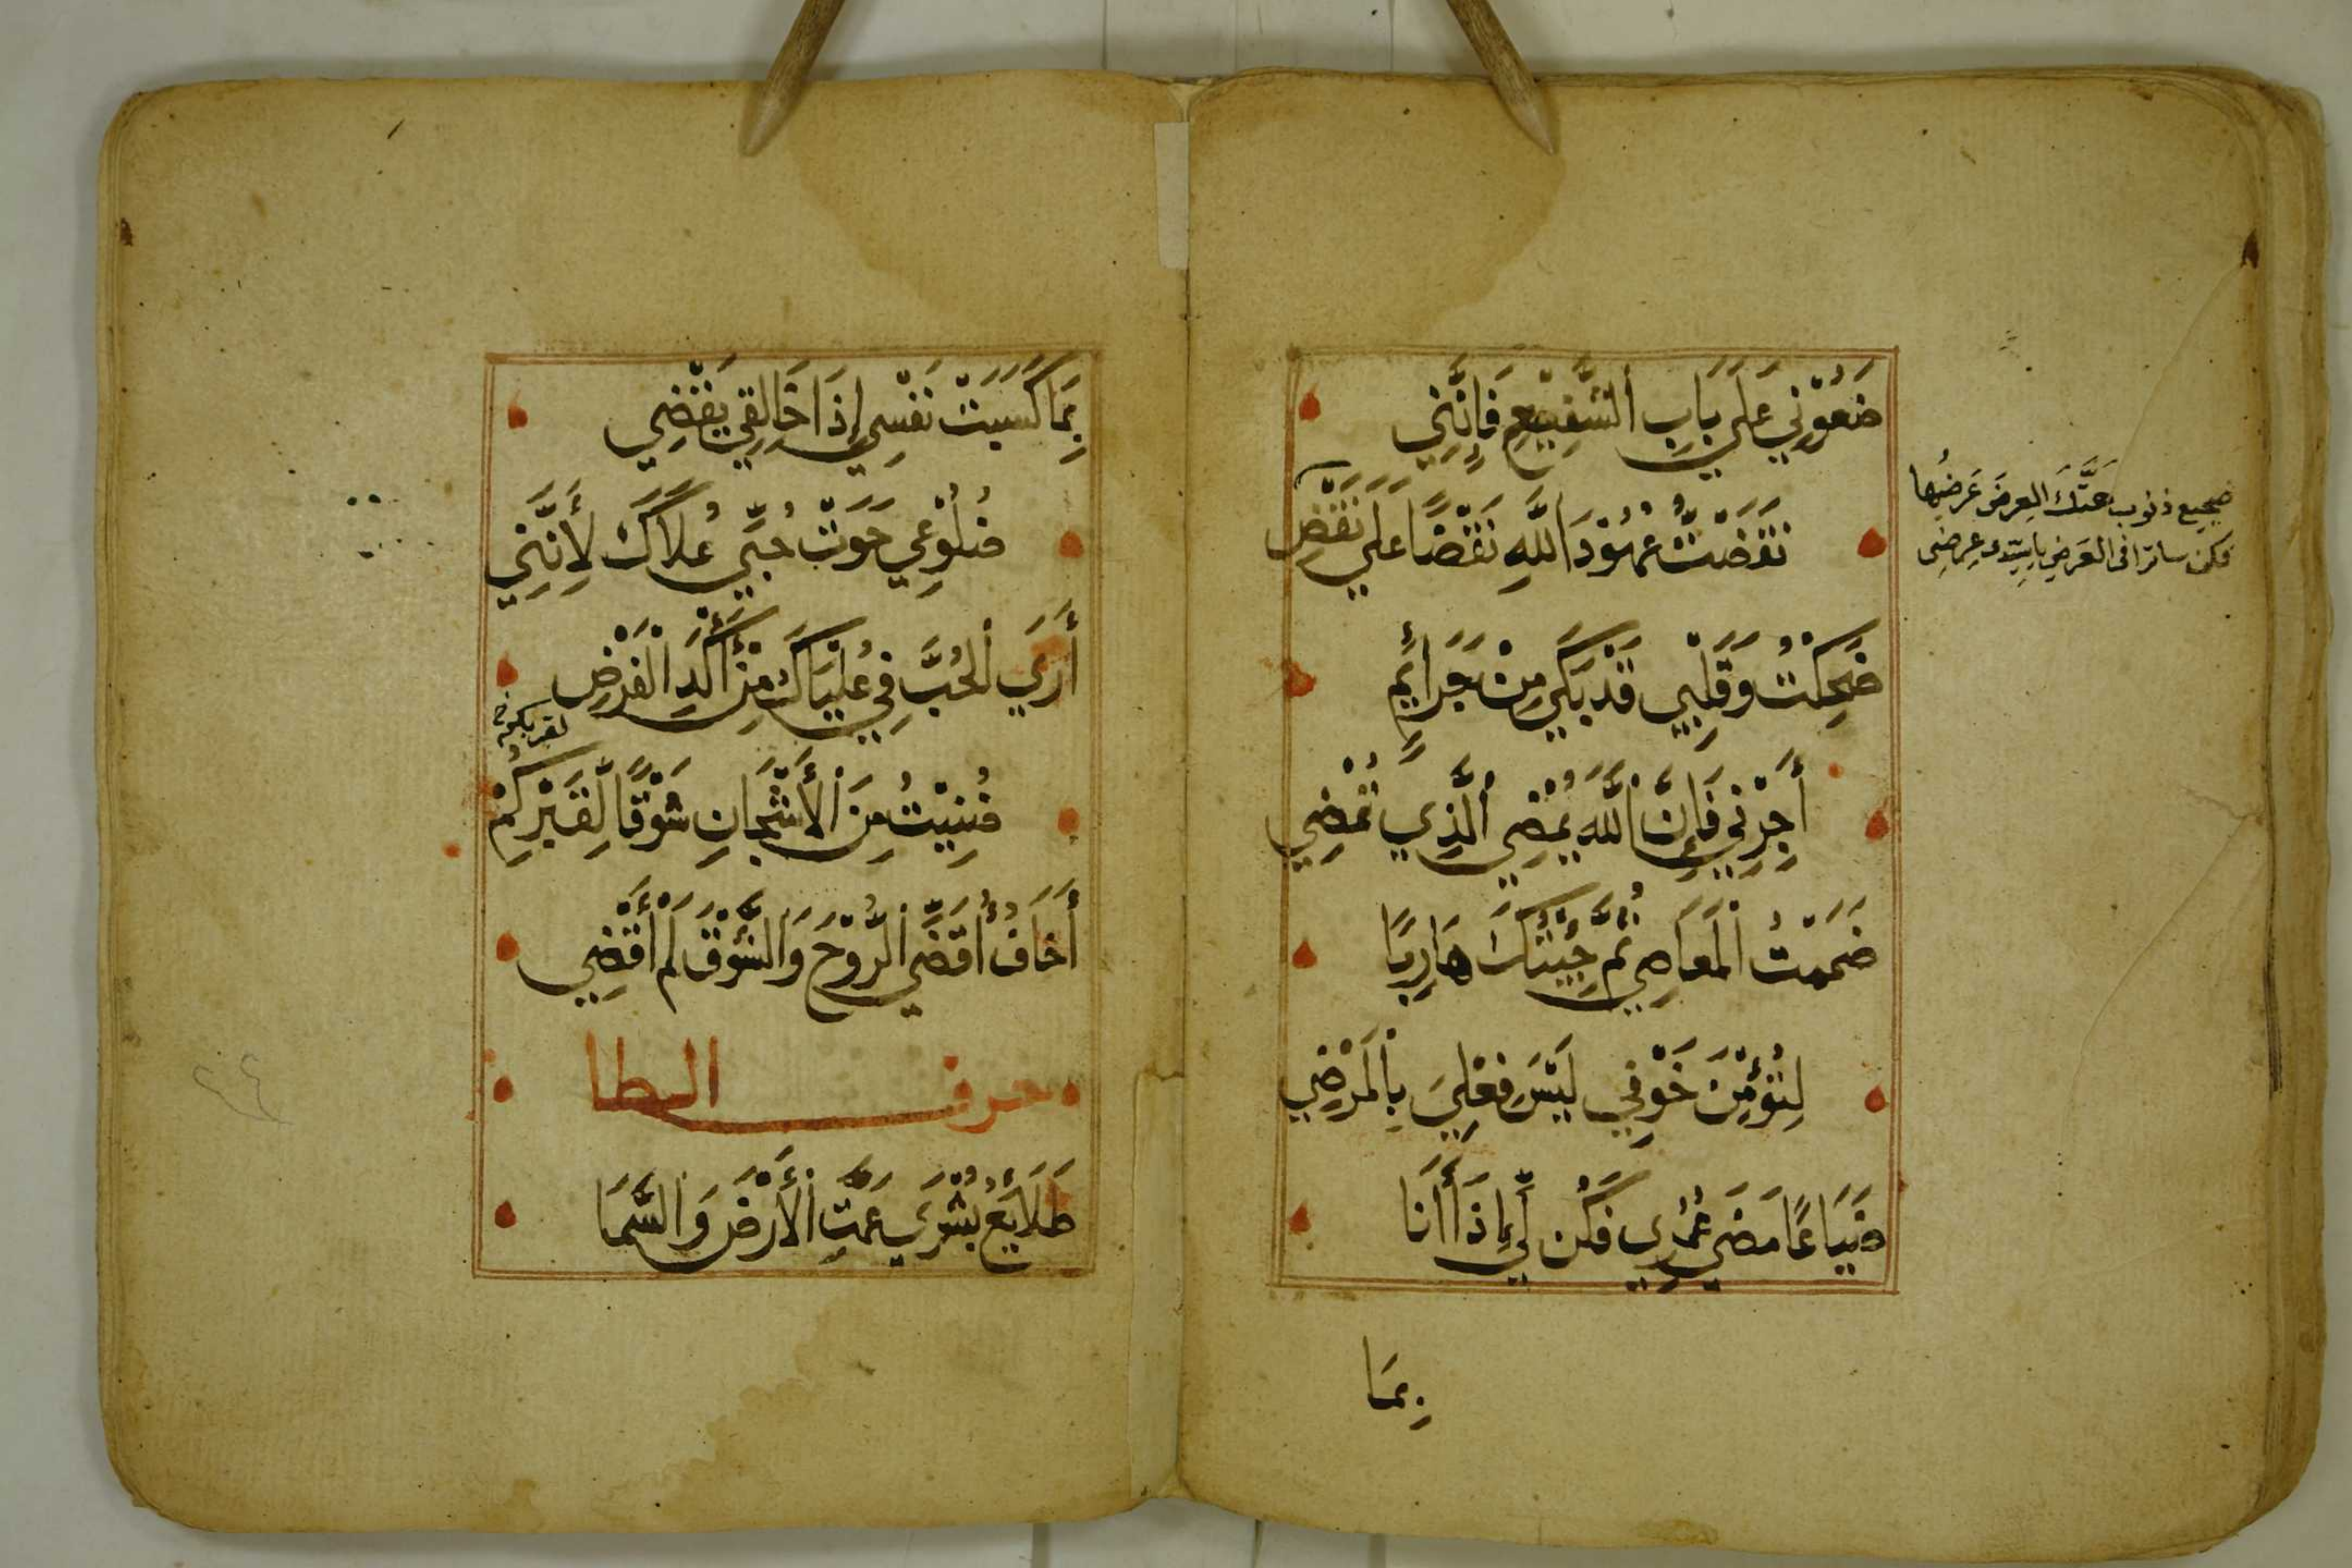 ضَعُوْنِي عَلَي بَابِ الشَّفِيْعِ فَإِنَّنِي
نَقَضْتُ عُهُوْدَ اللَّهِ نَقْضًا عَلَي نَقْضِ
ضَحِكْتُ وَقَلْبِي قَدْ بَكَي مِنْ جَرَائِمٍ
أَجِرْنِي فَإِنَّ اللَّهَ يُمْضِي الَّذِي تُمْضِي
ضَمَمْتُ الْمَعَاصِي ثُمَّ جِئْتُكَ هَارِبًا
لِتُؤْمِنَ خَوْفِي لَيْسَ فِعْلِيَ بِالْمَرْضِي
ضَيَاعًا مَضَي عُمْرِي فَكُن لِّي إِذَا أَنَا
بِمَا
ذنوب هتك العرض عرضها
فكن ساترا في العرض يا سيدي عرضي
بِمَا كَسَبَتْ نَفْسِي إِذَا خَالِقِي يَقْضِي
ضُلُوْعِي حَوَتْ حُبِّي عُلَاكَ لِأَنَّنِي
أَرَي الْحُبَّ فِي عُلْيَاكَ مِنْ أَكَدِ الْفَرْضِ
لقربكم خ
ضُنِيْتُ مِنَ الْأَشْجَانِ شَوْقًا لِقَبْرِكُمْ
أَخَافُ أُقَضِّي الرُّوْحَ وَالشَّوْقَ لَمْ أَقْضِي
حرف الطا
طَلَائِعُ بُشْرَي عَمَّتِ الْأَرْضَ وَالسَّمَا